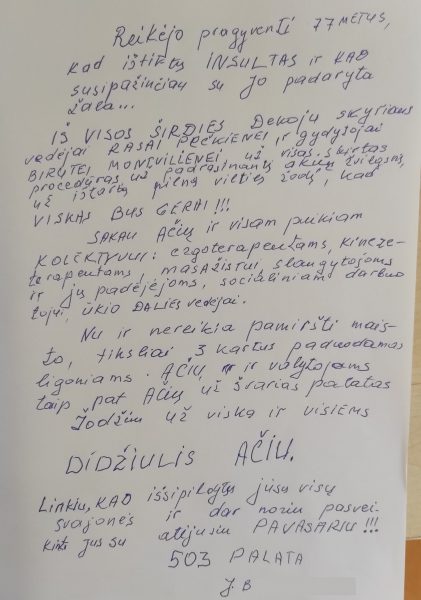 Reikėjo pragyventi 77 METUS,
kad ištiktų INSULTAS ir KAD
susipažinčiau su jo padaryta
žala...
IŠ VISOS ŠIRDIES Dekoju skyriaus
vedėjai RASAI PEČKIENEI, ir gydytojai
BIRUTEI MONTVILIENEI už visas skirtas
procedūras, už padrąsinantį akių žvilgsnį,
už ištartą pilną vilties žodį, kad
VISKAS BUS GERAI!!!
SAKAU AČIŪ ir visam puikiam
KOLEKTYVUI: ergoterapeutams, kineze-
terapeutams, masažistui, slaugytojoms
ir jų padėjėjoms, socialiniam darbuo
tojui, ŪKIO DALIES vedėjai.
Nu ir nereikia pamiršti mais-
to, tiksliai 3 kartus paduodamas
ligoniams. AČIŪ ir valytojams
taip pat AČIŪ už švarias palatas
Žodžiu už viską ir visiems
DIDŽIULIS AČIŪ.
Linkiu, KAD išsipildytų jūsų visų
svajonės ir dar noriu pasvei-
kinti jus su atėjusiu PAVASARIU!!!
503 PALATA
J. B